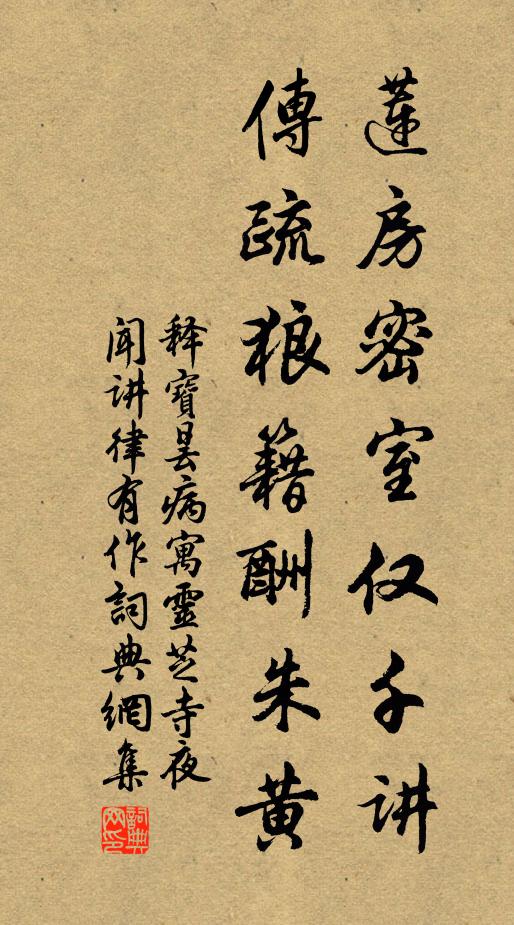 蓮房密室仅千讲
傳疏狼籍酬朱黄
释寶昙病寓靈芝寺夜
闻讲律有作詞典網集
詞典网印